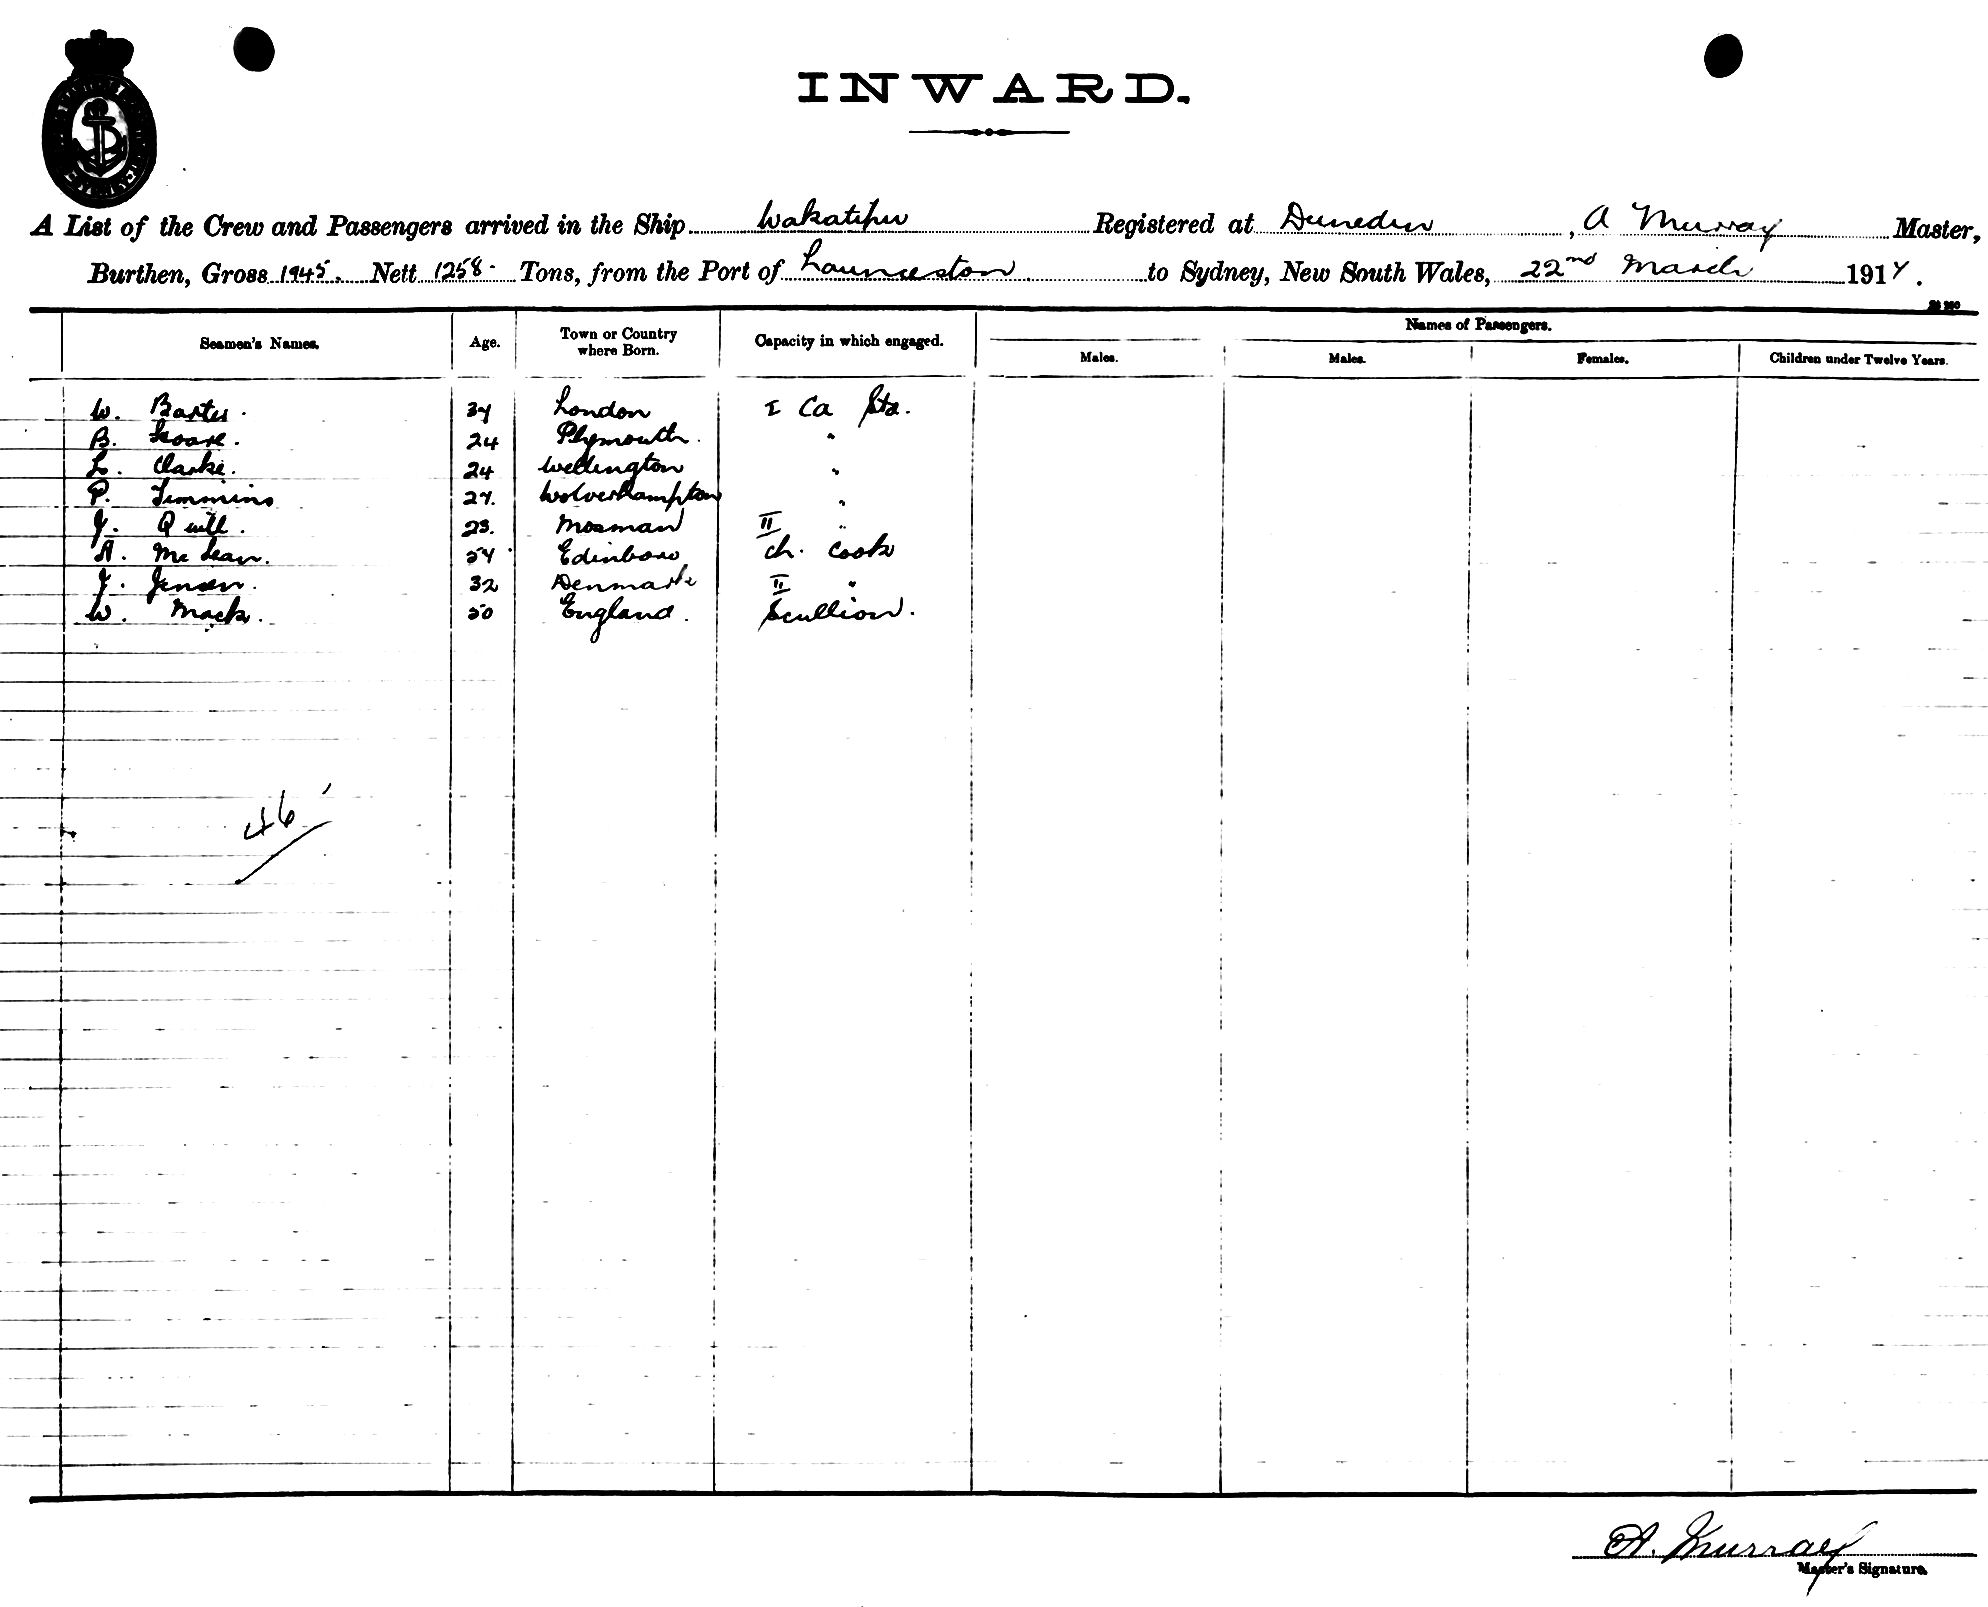 INWARD.
A List of the Crew and Passengers arrived in the Ship Wakatipu Registered at Dunedin, A Murray Master,
Burthen, Gross 1945. Nett 1258. Tons, from the Port of Launceston to Sydney, New South Wales, 22nd March 1914.
Names of Passengers.
Seamen's Names. Age. Town or Country where Born. Capacity in which engaged. Males. Males. Females. Children under Twelve Years.
W. Baxter. 34 London I Ca Std.
B. Hoare. 24 Plymouth. "
L. Clarke. 24 Wellington "
P. Timmins 27. Wolverhampton "
J. Quill. 23. Mosman II "
A. McLean. 54 Edinboro Ch. Cook
J. Jensen. 32 Denmark II "
W. Mack. 50 England. Scullion.
46
A. Murray
Master's Signature.